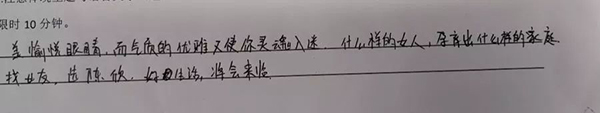 限时 10 分钟。
美愉悦眼睛,而气质的优雅又使你灵魂入迷. 什么样的女人,孕育出什么样的家庭
找女友,选陈欣,好的生活,将会来临